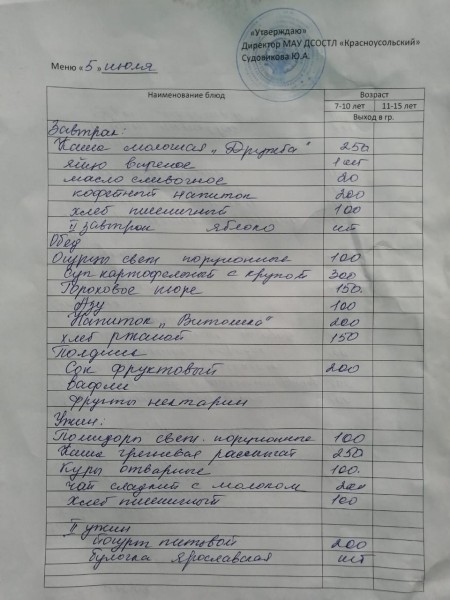 «Утверждаю»
Директор МАУ ДСОСТЛ «Красноусольский»
Судовикова Ю.А.
Меню « 5 » июля
Наименование блюд Возраст
7-10 лет 11-15 лет
Выход в гр.
Завтрак:
Каша молочная „Дружба" 250
яйцо вареное 1 шт
масло сливочное 20
кофейный напиток 200
хлеб пшеничный 100
II завтрак яблоко шт
Обед
Огурцы свеж порционные 100
Суп картофельный с крупой 300
Гороховое пюре 150
Азу 100
Напиток „Витошка" 200
хлеб ржаной 150
Полдник
Сок фруктовый 200
Вафли
Фрукты нектарин
Ужин:
Помидоры свеж. порционные 100
Каша гречневая рассыпчат 250
Куры отварные 100
Чай сладкий с молоком 200
Хлеб пшеничный 100
II ужин
йогурт питьевой 200
булочка ярославская шт